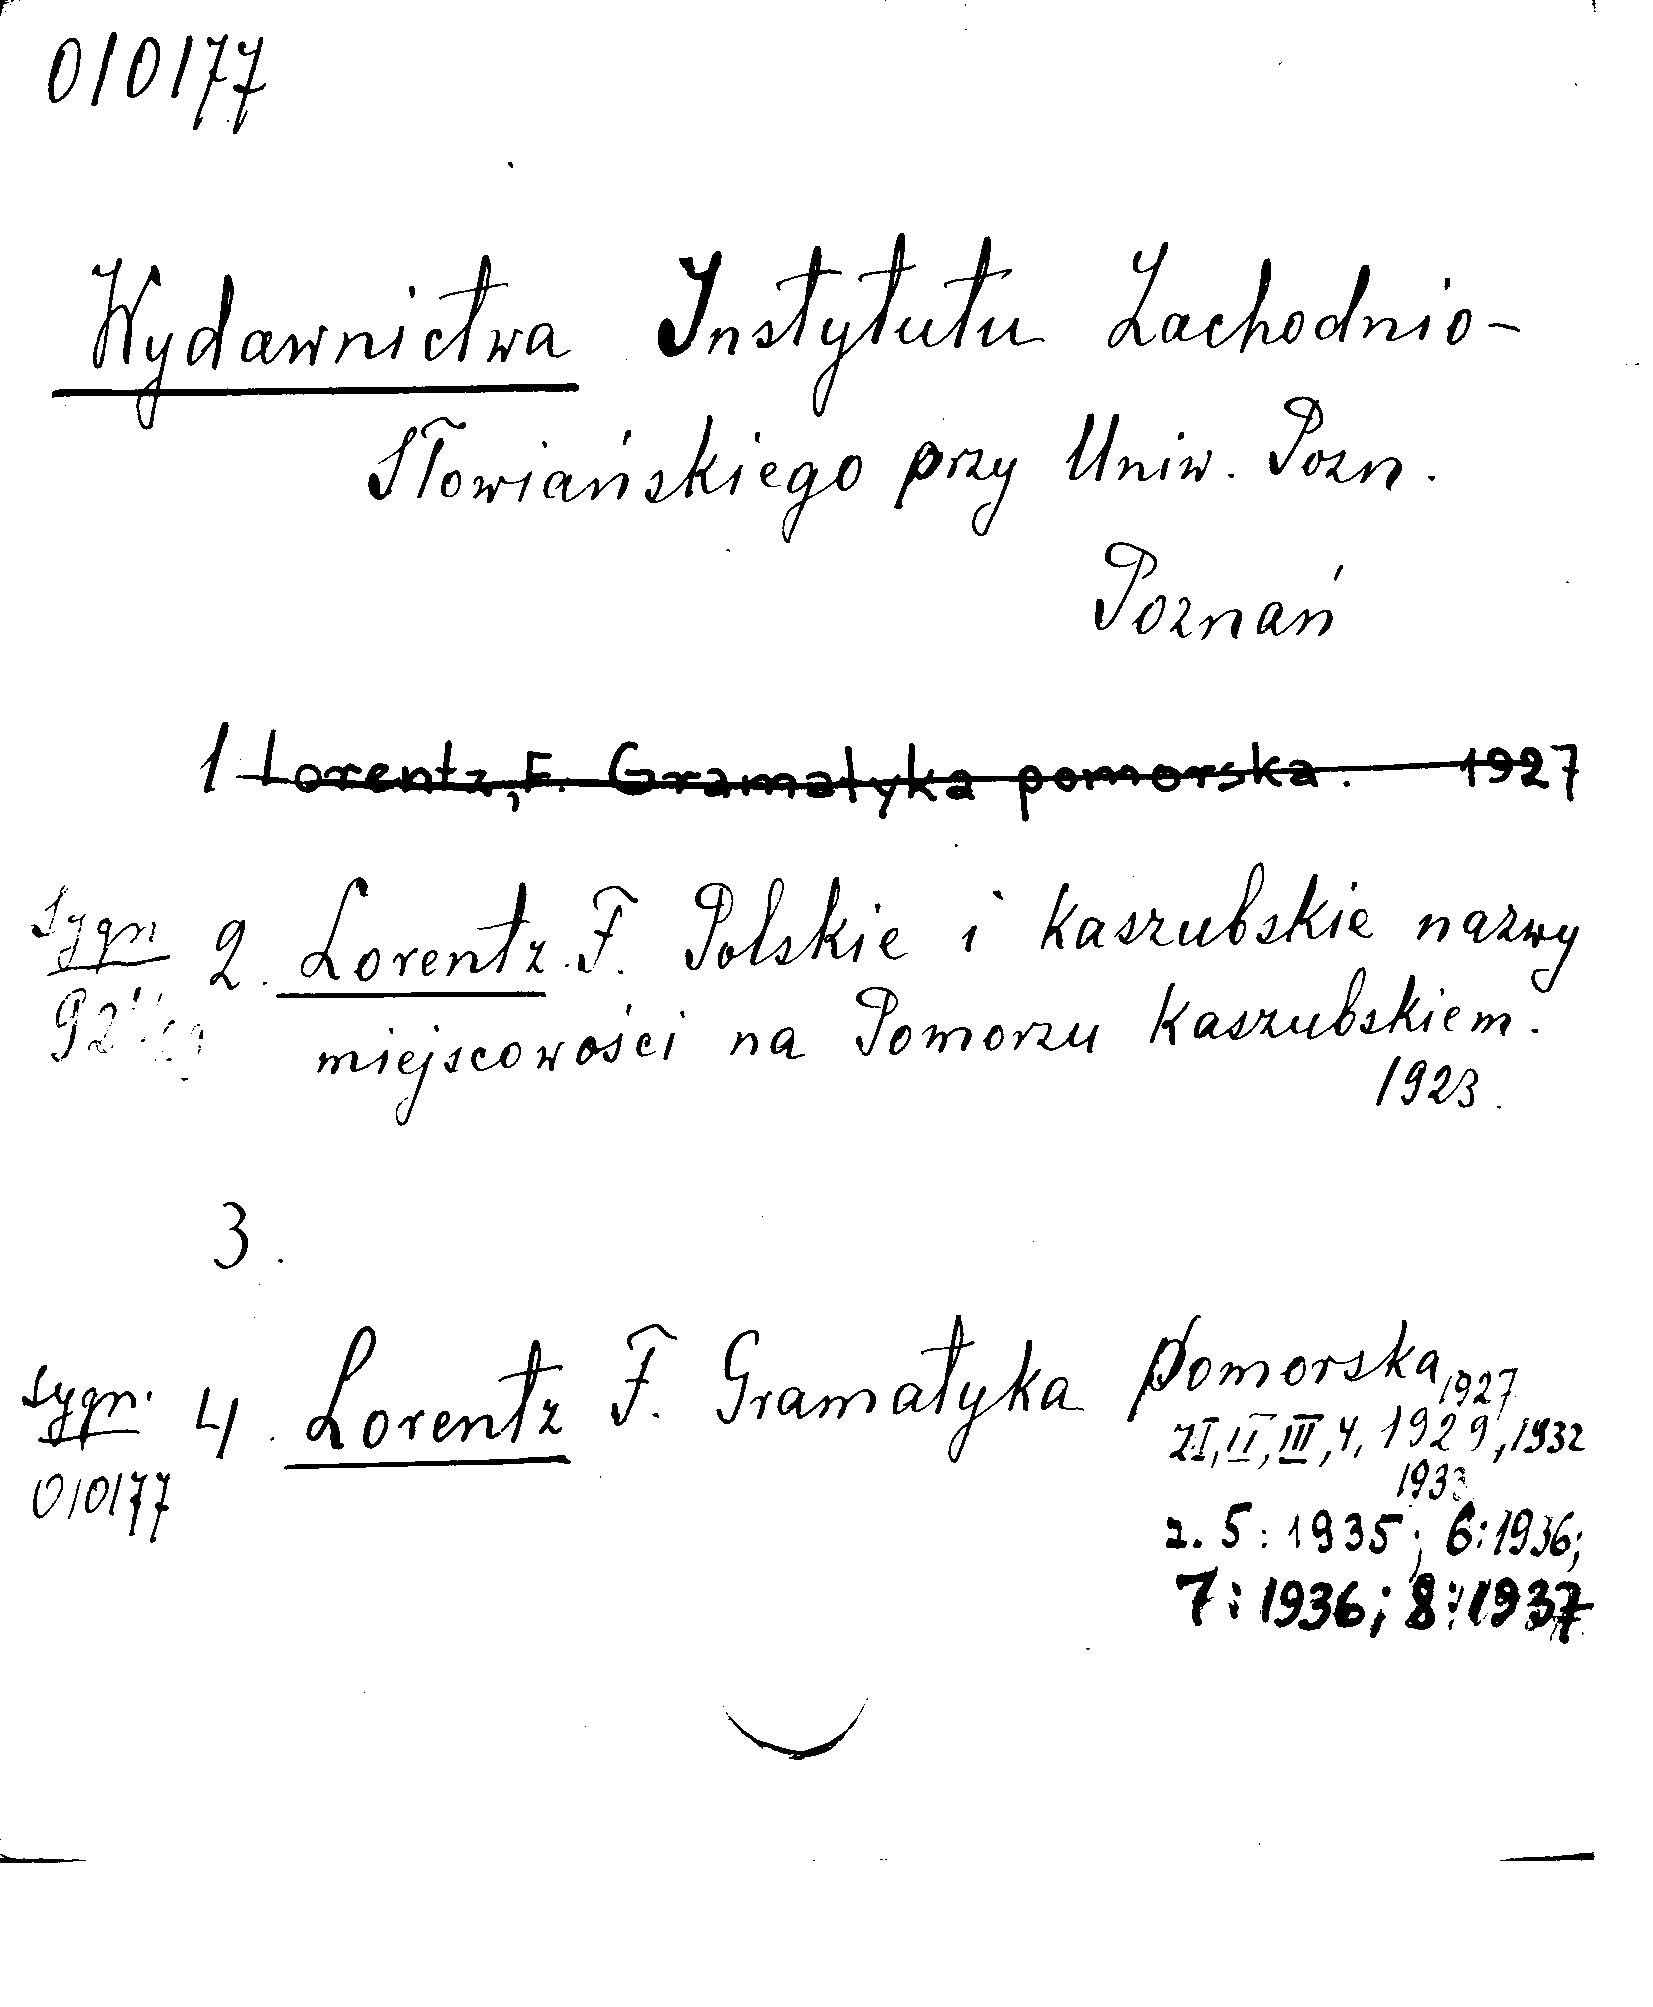 010177
Wydawnictwa Instytutu Zachodnio-
Słowiańskiego przy Uniw. Pozn.
Poznań
1 Lorentz, F. Gramatyka pomorska. 1927
Sygn 2. Lorentz F. Polskie i kaszubskie nazwy
miejscowości na Pomorzu Kaszubskiem.
1923.
3.
Sygn. 4. Lorentz F. Gramatyka Pomorska, 1927
010177
z I, II, III, 4, 1929, 1932
1933
z. 5: 1935; 6: 1936;
7: 1936; 8: 1937